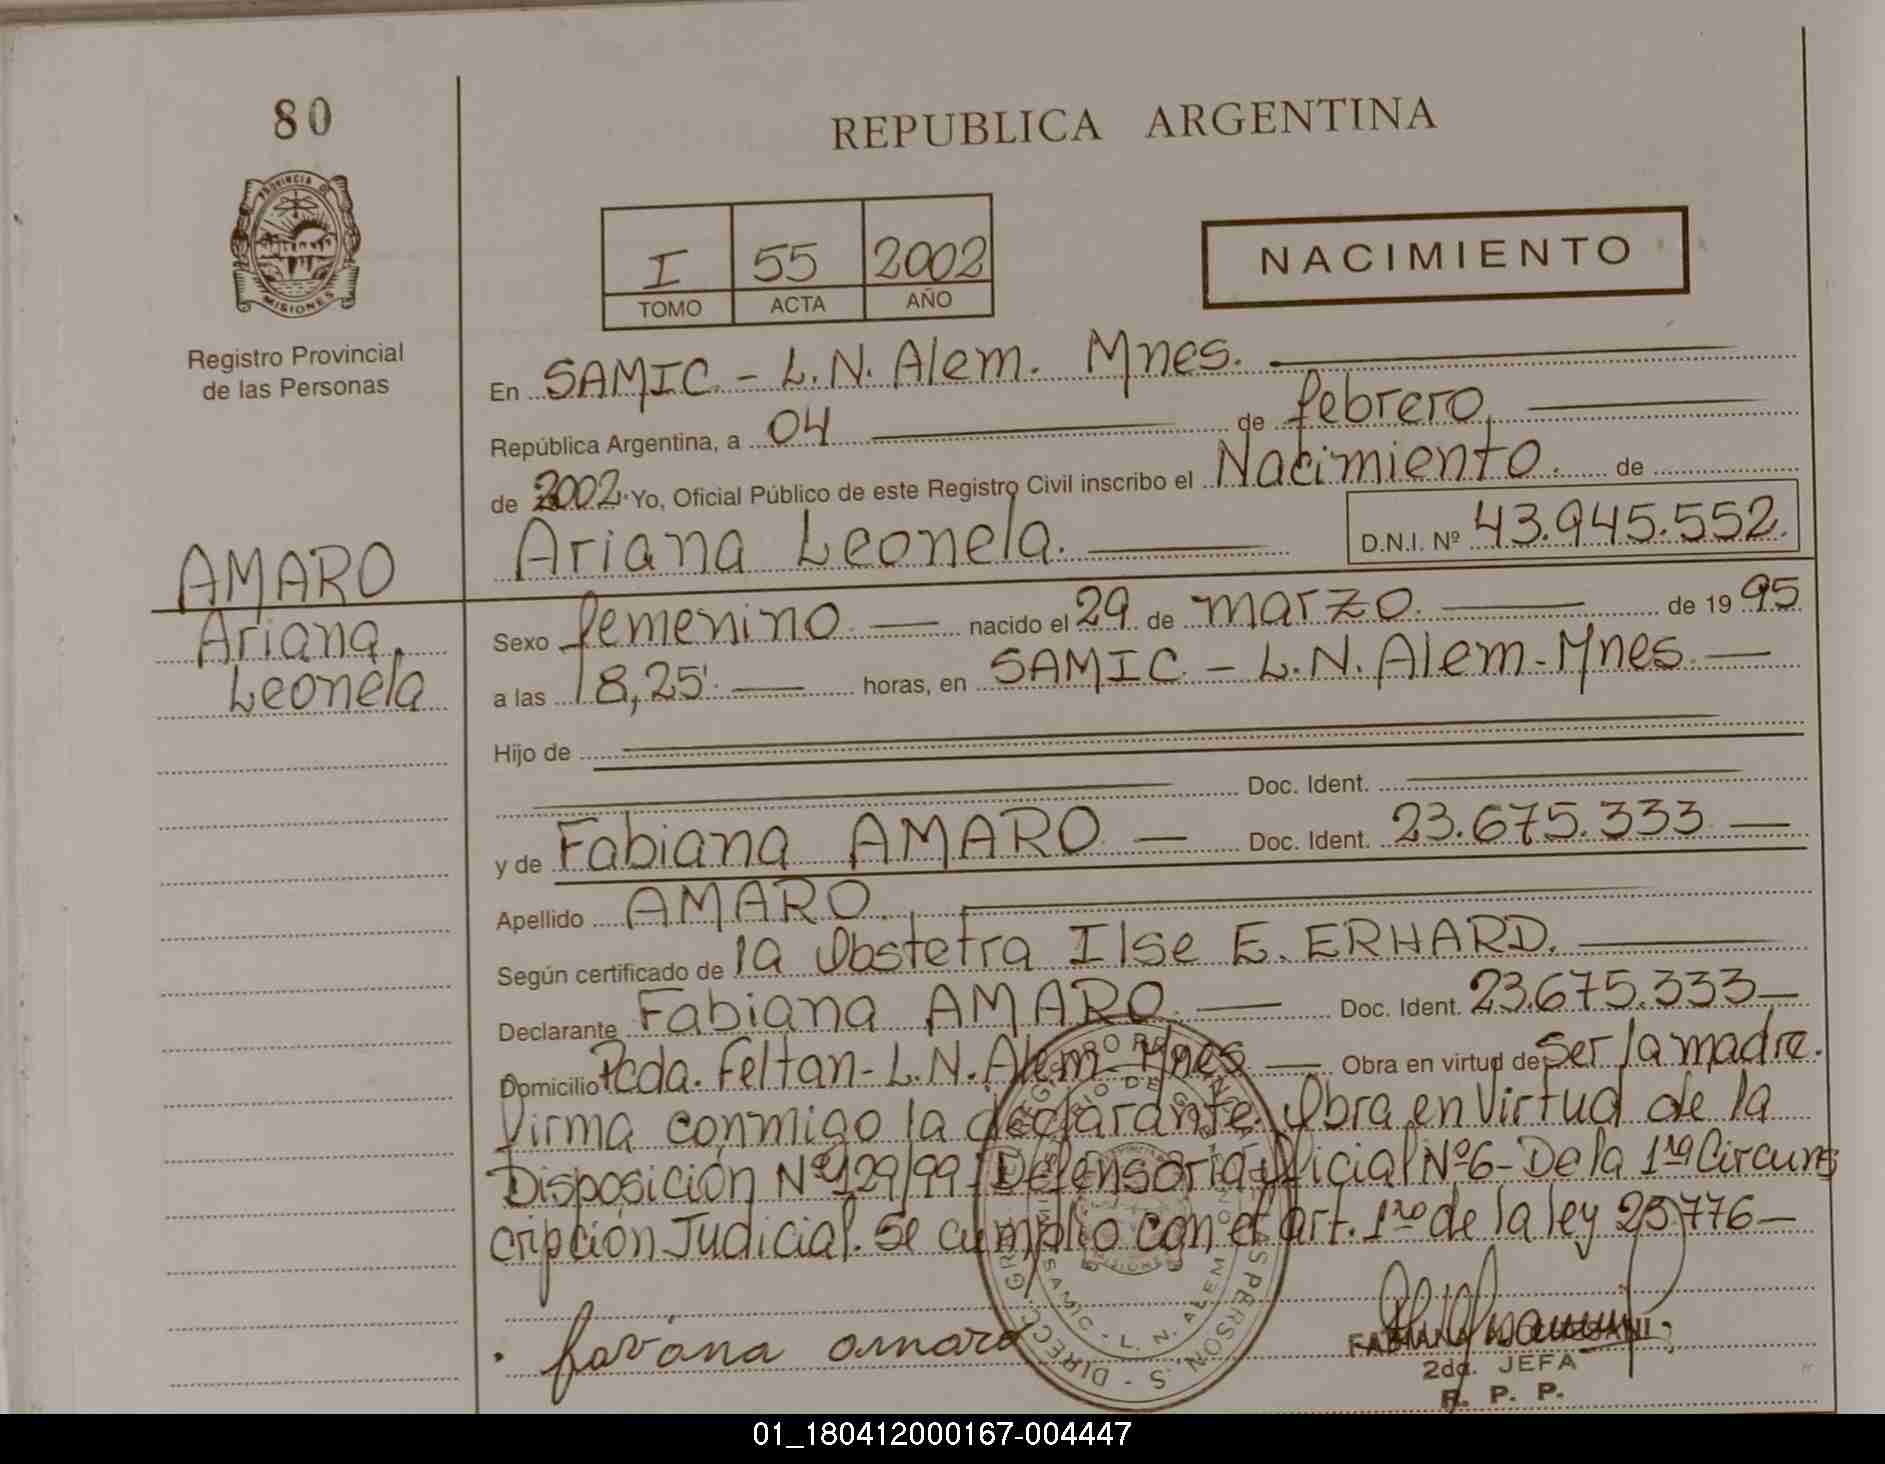 80
REPUBLICA ARGENTINA
PROVINCIA DE
MISIONES
Registro Provincial
de las Personas
I 55 2002
TOMO ACTA AÑO
NACIMIENTO
En SAMIC - L.N. Alem. Mnes.
República Argentina, a 04 de febrero
de 2002. Yo, Oficial Público de este Registro Civil inscribo el Nacimiento. de
Ariana Leonela. D.N.I. Nº 43.945.552.
AMARO
Ariana
Leonela
Sexo femenino nacido el 29 de marzo. de 19 95
a las 18,25' horas, en SAMIC - L.N. Alem - Mnes.
Hijo de
Doc. Ident.
y de Fabiana AMARO Doc. Ident. 23.675.333
Apellido AMARO.
Según certificado de la Obstetra Ilse E. ERHARD.
Declarante Fabiana AMARO Doc. Ident. 23.675.333
Domicilio Pcda. Feltan - L.N. Alem - Mnes Obra en virtud de Ser la madre.
firma conmigo la declarante. Obra en Virtud de la
Disposición Nº 129/99 - Defensoria Oficial Nº 6 - De la 1ra Circuns
cripción Judicial. Se cumplio con el art. 1ro de la ley 23776
favana amaro
FABIANA
2da. JEFA
R. P. P.
SAMIC - L. N. ALEM
01_180412000167-004447